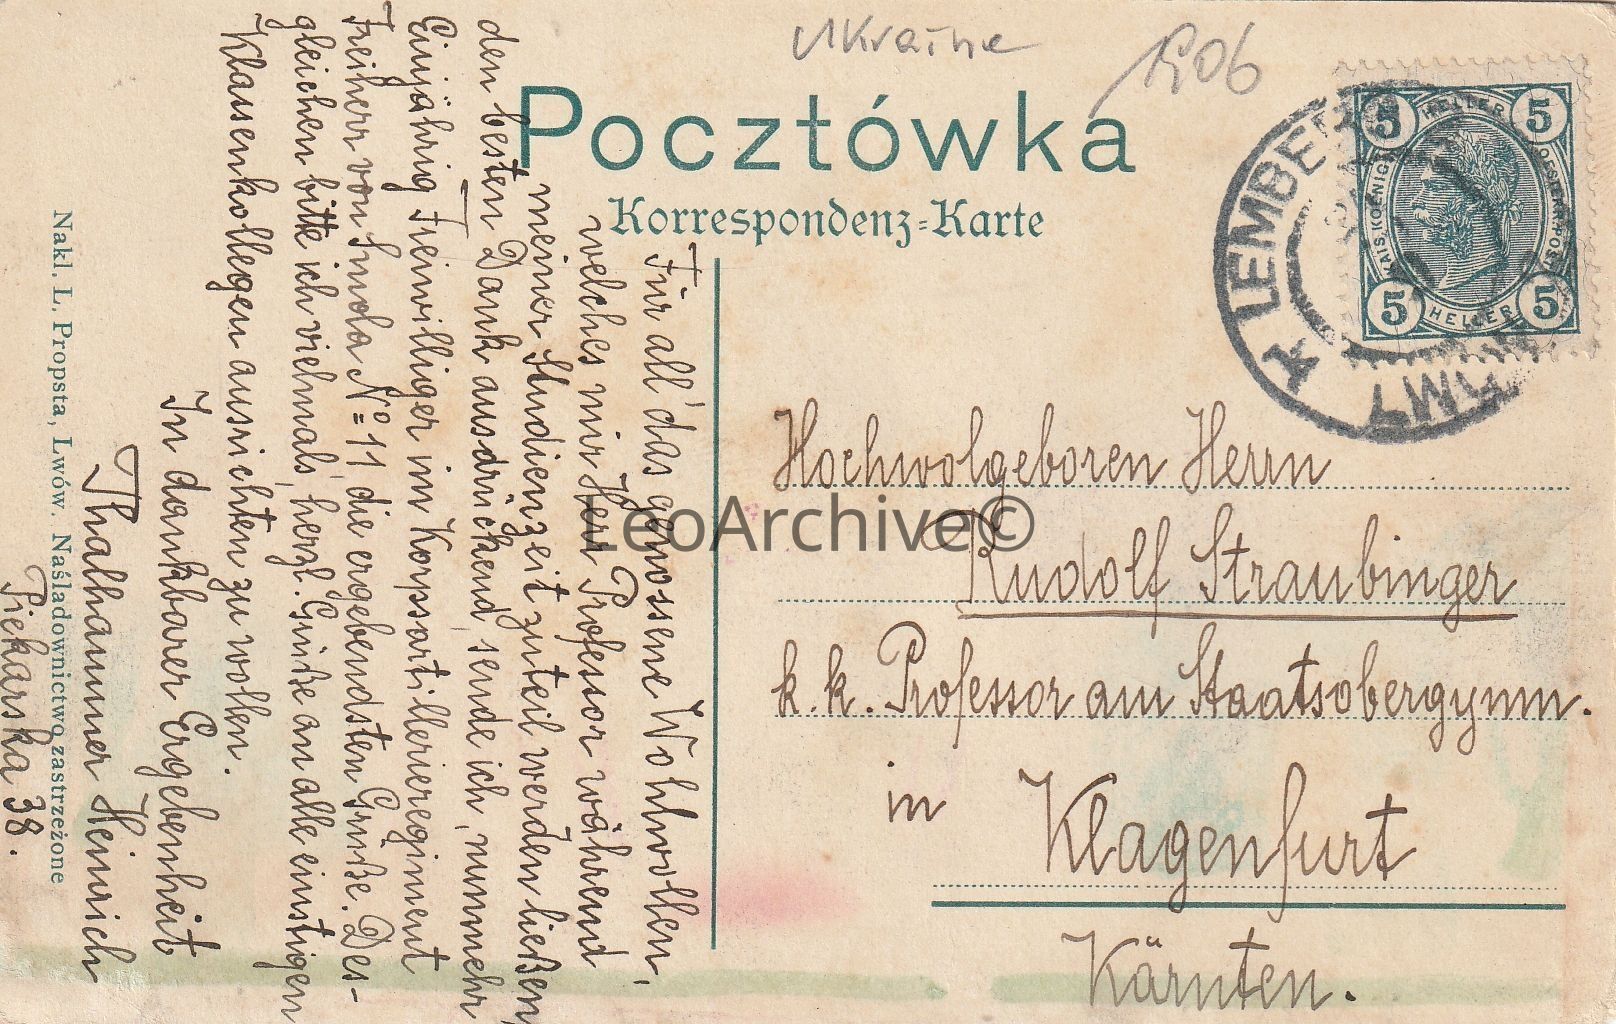 Ukraine
1906
Pocztówka
Korrespondenz-Karte
LEMBERG
LWÓW
5 HELLER 5
KAIS. KOENIGL. OESTERR. POST
5 HELLER 5
Für all' das genossene Wohlwollen,
welches mir Herr Professor während
meiner Studienzeit zuteil werden ließen,
den besten Dank ausdrückend, sende ich, nunmehr
Einjährig Freiwilliger im Korpsartillerieregiment
Freiherr von Smola No 11 die ergebendsten Grüße. Des-
gleichen bitte ich vielmals, herzl. Grüße an alle einstigen
Klassenkollegen ausrichten zu wollen.
In dankbarer Ergebenheit
Thalhammer Heinrich
Piekarska 38.
Nakl. L. Propsta, Lwów. Naśladownictwo zastrzeżone
Hochwolgeboren Herrn
Rudolf Straubinger
k. k. Professor am Staatsobergymn.
in Klagenfurt
Kärnten.
LeoArchive©